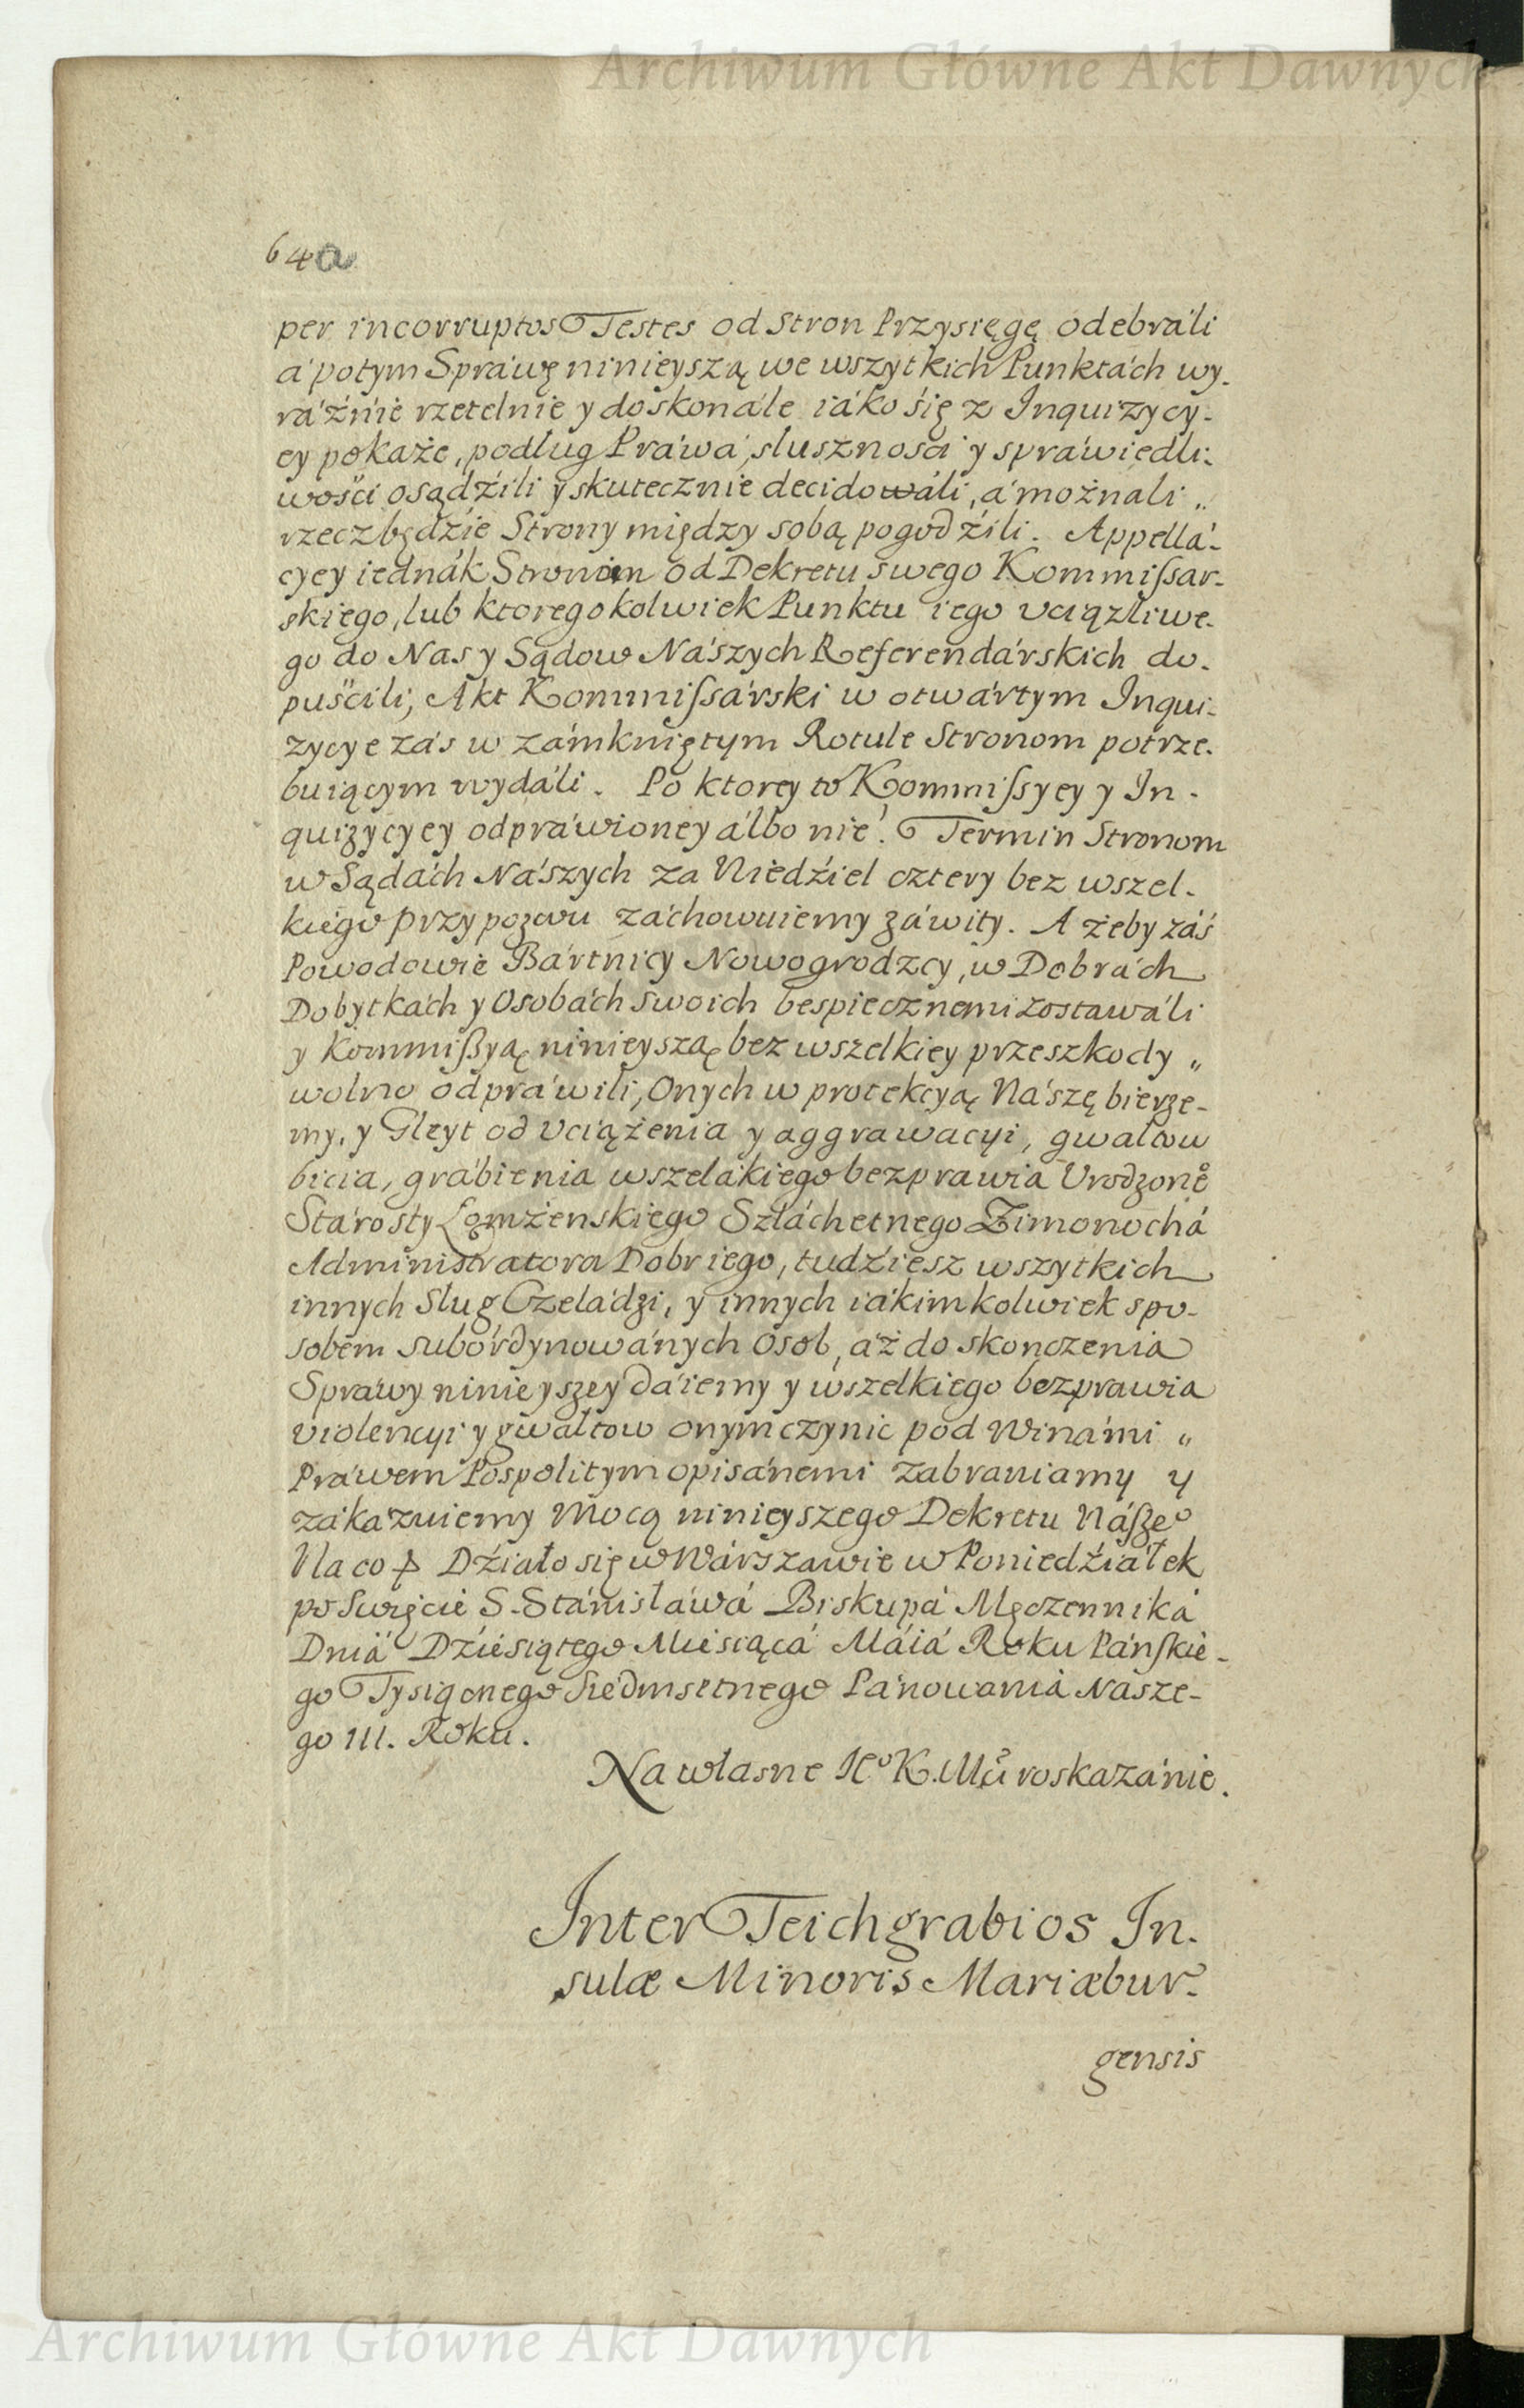 Archiwum Główne Akt Dawnych
64a
per incorruptos Testes od Stron Przysięgę odebráli
á potym Spráwę ninieyszą we wszytkich Punktách wy-
ráźnie rzetelnie y doskonále iáko się z Inquizycy-
ey pokaże, podlug Práwá, slusznosci y spráwiedli-
wości osądźili y skutecznie decidowáli, á możnali „
rzecz będźie Strony między sobą pogodźili. Appellá-
cyey iednák Stronom od Dekretu swego Kommissar-
skiego, lub ktoregokolwiek Punktu iego vciązliwe-
go do Nas y Sądow Nászych Referendárskich do-
puśćili, Akt Kommissárski w otwártym Inqui-
zycye zás w zámkniętym Rotule Stronom potrze-
buiącym wydáli. Po ktorey to Kommissyey y In-
quizycyey odpráwioney álbo nie! Termin Stronom
w Sądách Nászych za Niedźiel cztery bez wszel-
kiego przypozwu záchowuiemy záwity. A żeby záś
Powodowie Bártnicy Nowogrodzcy, w Dobrách
Dobytkách y Osobách swoich bespiecznemi zostawáli
y Kommißyą ninieyszą bez wszelkiey przeszkody „
wolno odpráwili, Onych w protekcyą Nászę bierze-
my, y Gleyt od vciążenia y aggrawacyi, gwaltow
bicia, grábienia wszelákiego bezprawia Vrodzoneͦ
Stárosty Łomżenskiego Szláchetnego Zimonochá
Administratora Dobr iego, tudźiesz wszytkich
innych Slug Czeladzi, y innych iákimkolwiek spo-
sobem subordynowánych Osob, áż do skonczenia
Spráwy ninieyszey dáiemy y wszelkiego bezprawia
violencyi y gwaltow onym czynic pod Winámi „
Práwem Pospolitym opisánemi zabraniamy y
zákazuiemy Mocą ninieyszego Dekretu Nászeo
Na co ꝑ Dźiało się w Wárszawie w Poniedźiałek
po Swięcie S. Stánisláwá Biskupá Męczenniká
Dniá Dźiesiątego Miesiącá Máiá Roku Páńskie-
go Tysiącnego Siedmsetnego Pánowania Nasze-
go III. Roku.
Na własne Ieͦ K. Mci roskazánie.
Inter Teichgrabios In-
sulæ Minoris Mariæbur-
gensis
Archiwum Główne Akt Dawnych